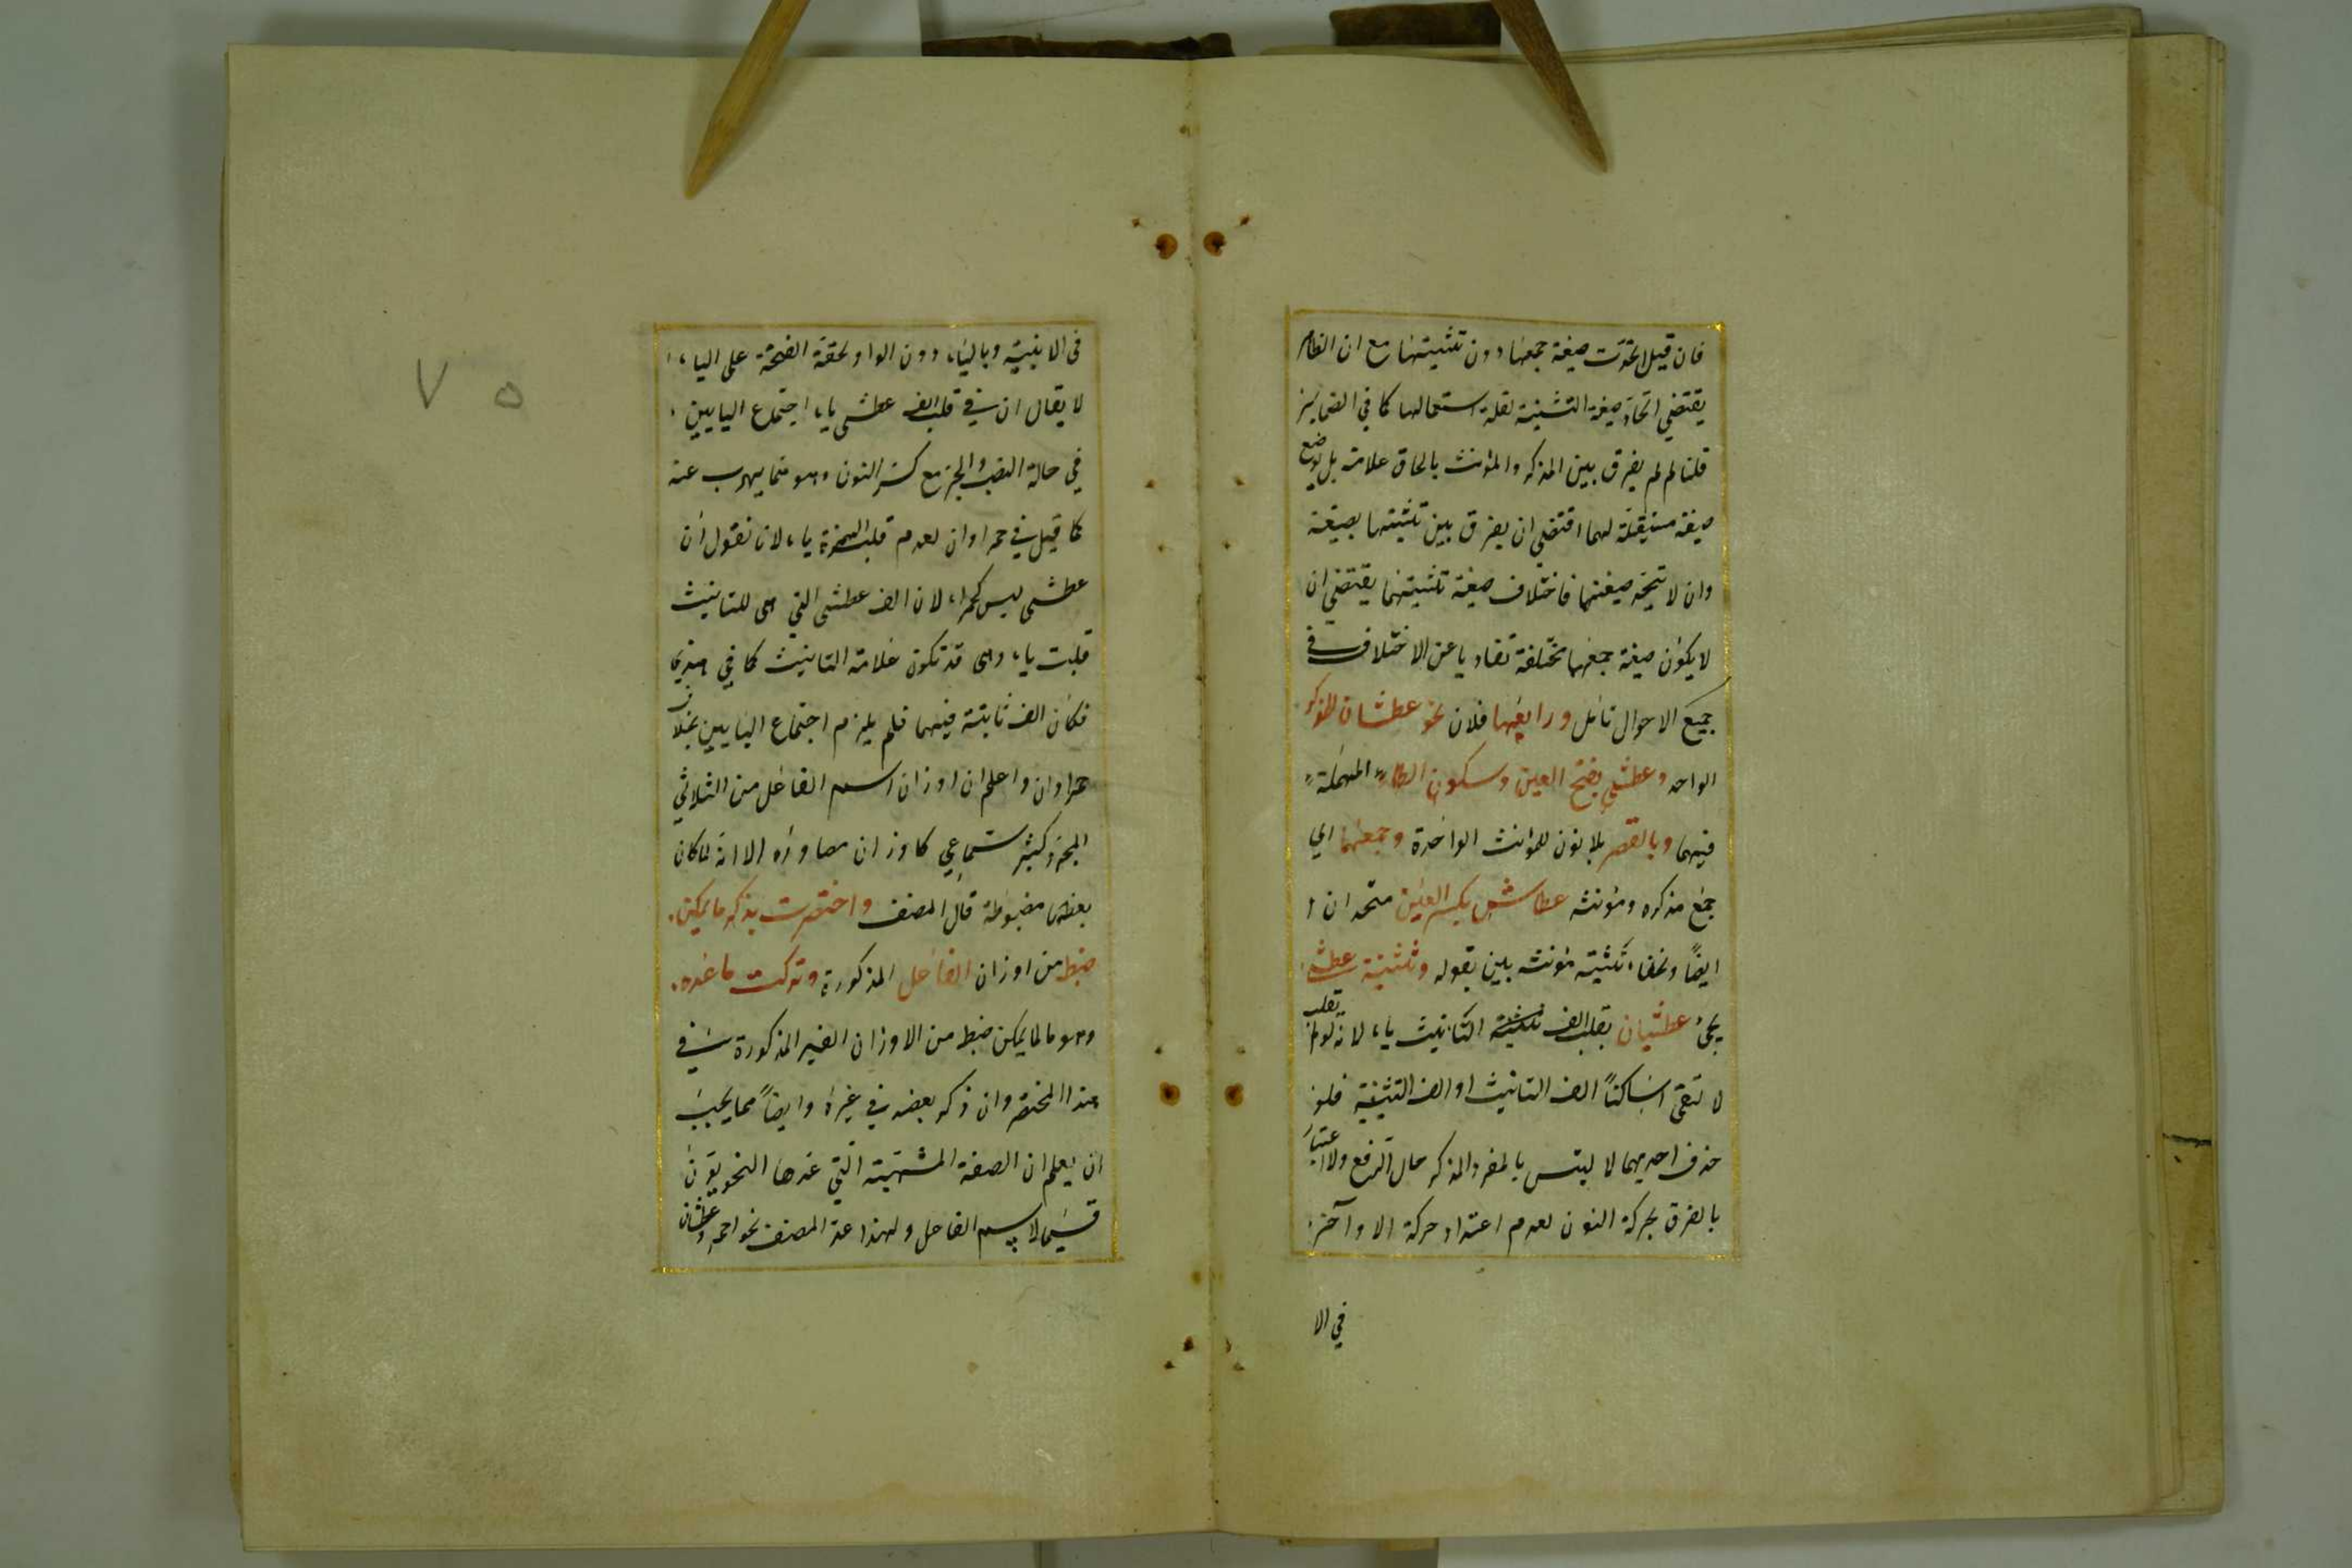 فان قيل لم اتحدت صيغة جمعها دون تثنيتها مع ان الظاهر
يقتضي اتحاد صيغة التثنية لقلة استعمالها كما في الضماير
قلنا لم لم يفرق بين المذكر والمؤنث بالحاق علامة بل بوضع
صيغة مستقلة لهما اقتضى ان يفرق بين تثنيتهما بصيغة
وان لا تتحد صيغتهما فاختلاف صيغة تثنيتهما يقتضي ان
لا يكون صيغة جمعهما مختلفة تفاديا عن الاختلاف في
جميع الاحوال تأمل ورابعها فلان نحو عطشان للمذكر
الواحد وعطشى بفتح العين وسكون الطاء المهملة
فيهما وبالقصر بلا نون للمؤنث الواحدة وجمعهما اي
جمع مذكره ومؤنثه عطاش بكسر العين متحدان
ايضاً ولخفاء تثنية مؤنثه بين بقوله وتثنية عطشى
يجئ عطشيان بقلب الف التانيث ياء لانه لو لم تقلب
لا لتقى اساكنا الف التانيث او الف التثنية فلو
حذف احديهما لا لتبس بالمفرد المذكر حال الرفع ولا اعتبار
بالفرق بحركة النون لعدم اعتداد حركة الاواخر
في الا
في الابنية وبالياء دون الواو لخفة الفتحة على الياء
لا يقال ان في قلب الف عطشى ياء اجتماع اليايين
في حالة النصب والجر مع كسر النون وهو مما يهرب عنه
كما قيل في حمراوان لعدم قلب الهمزة ياء لانا نقول ان
عطشى ليس كحمراء لان الف عطشى التي هي للتانيث
قلبت ياء وهي قد تكون علامة التانيث كما في هذي
فكان الف ثابتة فيهما فلم يلزم اجتماع اليايين بخلاف
حمراوان واعلم ان اوزان اسم الفاعل من الثلاثي
المجرد كثير سماعي كاوزان مصادره الا انه لما كان
بعضها مضبوطة قال المصنف واختصرت بذكر ما يمكن
ضبط من اوزان الفاعل المذكورة وتركت ما عداه
وهو ما لا يمكن ضبط من الاوزان الغير المذكورة في
هذا المختصر وان ذكر بعضه في غيره وايضاً مما يجب
ان يعلم ان الصفة المشبهة التي عدها النحويون
قسيما لاسم الفاعل ولهذا عد المصنف نحو احمر وعطشان
٧٥